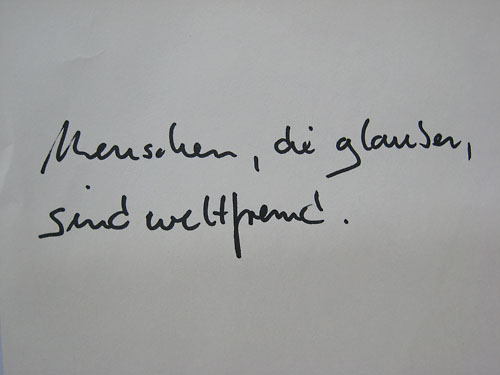 Menschen, die glauben,
sind weltfremd.